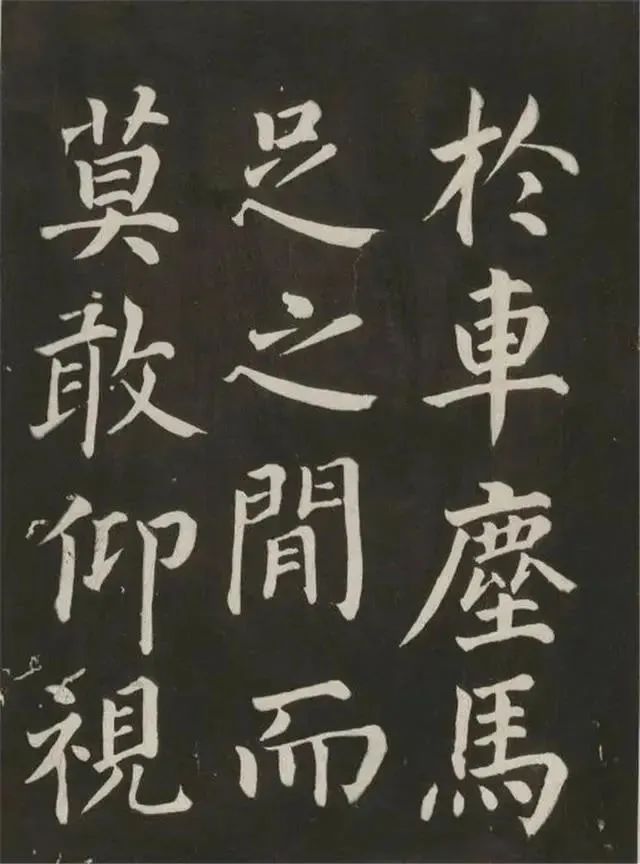 於車塵馬
足之間而
莫敢仰視